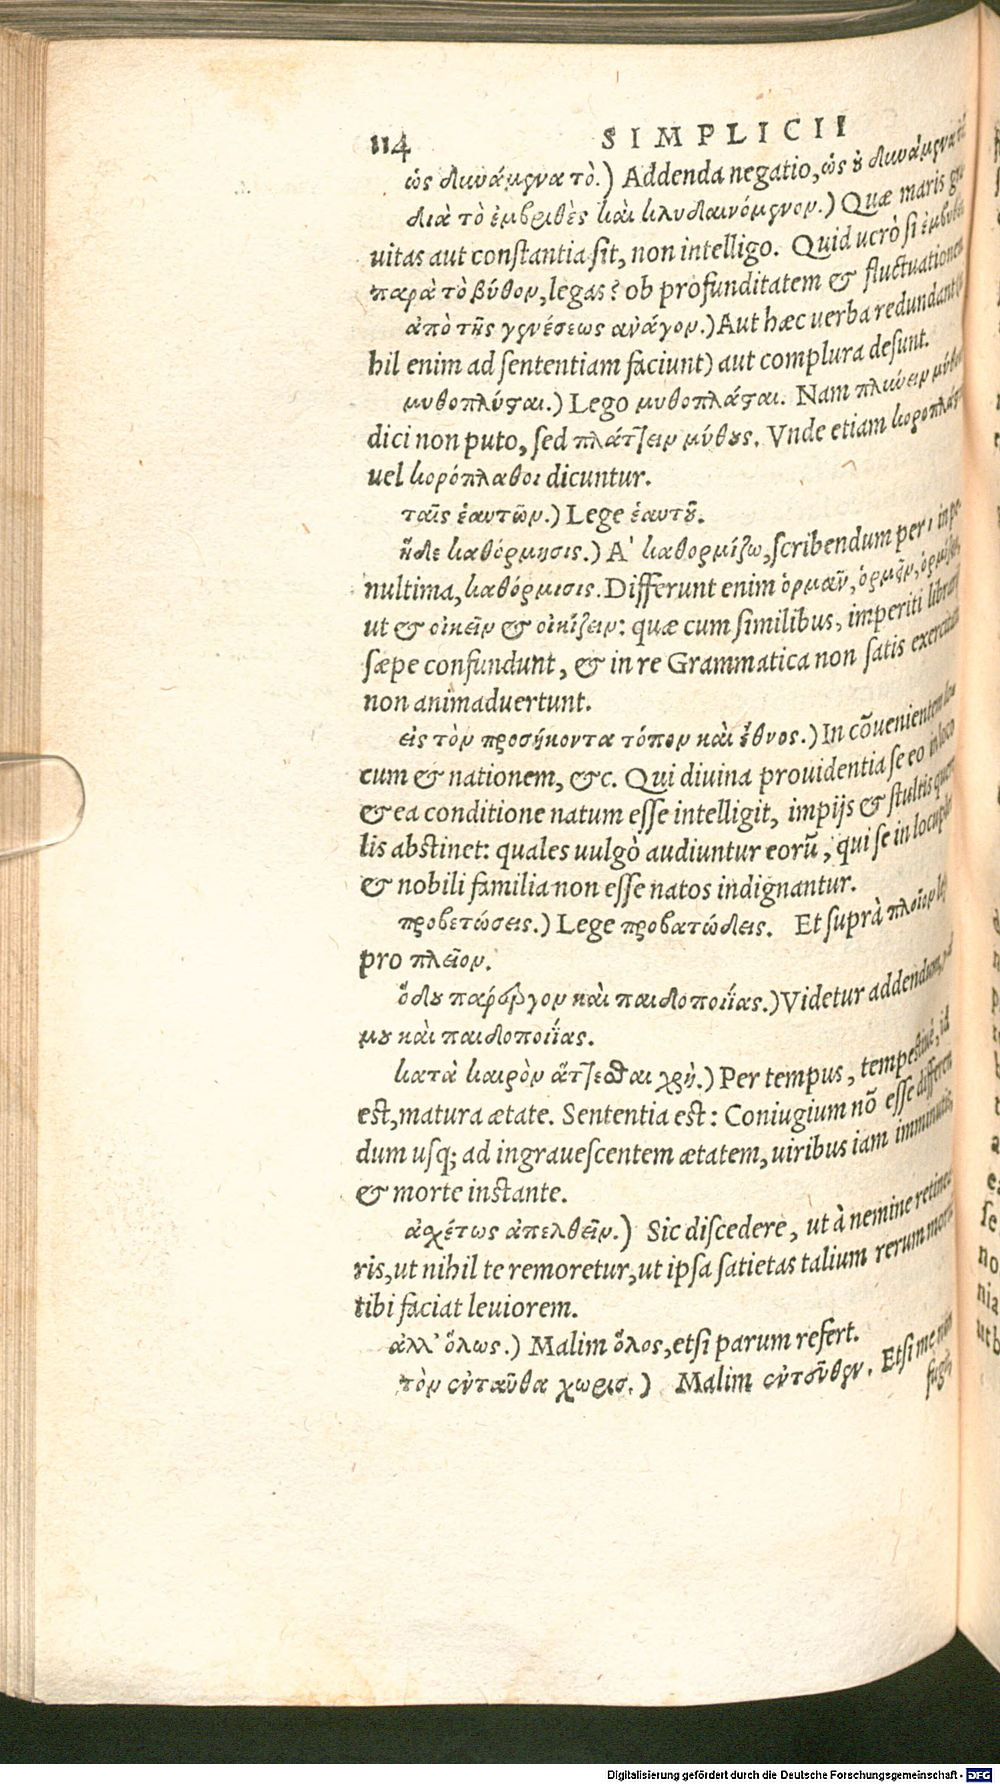 114 SIMPLICII
ὡς δυνάμενα τὸ.) Addenda negatio, ὡς ȣ δυνάμενα
διὰ τὸ ἐμβριθὲς καὶ κλυδαινόμενον.) Quæ maris gra
uitas aut constantia sit, non intelligo. Quid uerò si
παρὰ τὸ βύθον, legas? ob profunditatem & fluctuationem
ἀπὸ τῆς γενέσεως ἀνάγον.) Aut hæc uerba redundant
hil enim ad sententiam faciunt) aut complura desunt.
μυθοπλύϛαι.) Lego μυθοπλάϛαι. Nam πλύνειν
dici non puto, sed πλάτ]ειν μύθȣς. Vnde etiam
uel κορόπλαθοι dicuntur.
ταῖς ἑαυτῶν.) Lege ἑαυτȣ͂.
ἥδε καθόρμησις.) A' καθορμίζω, scribendum per ι in pe
nultima, καθόρμισις. Differunt enim ὁρμᾶν, ὁρμεῖν,
ut & οἰκεῖν & οἰκίζειν: quæ cum similibus, imperiti librarij
sæpe confundunt, & in re Grammatica non satis exercitati
non animaduertunt.
εἰς τὸν προσήκοντα τόπον καὶ ἔθνος.) In cōuenientem lo
cum & nationem, &c. Qui diuina prouidentia se eo in loco
& ea conditione natum esse intelligit, impijs & stultis quere
lis abstinet: quales uulgò audiuntur eorū, qui se in locuplete
& nobili familia non esse natos indignantur.
προβετώσεις.) Lege προβατώδεις. Et suprà πλοῖον
pro πλεῖον.
ὅδȣ πάρεργον καὶ παιδοποιΐας.) Videtur addendum,
μȣ καὶ παιδοποιΐας.
κατὰ καιρὸν ἅτ]εσθαι χρή.) Per tempus, tempestiuè, id
est, matura ætate. Sententia est: Coniugium nō esse differen
dum usq; ad ingrauescentem ætatem, uiribus iam imminutis,
& morte instante.
ἀσχέτως ἀπελθεῖν.) Sic discedere, ut à nemine retinea
ris, ut nihil te remoretur, ut ipsa satietas talium rerum
tibi faciat leuiorem.
ἀλλ' ὅλως.) Malim ὅλος, etsi parum refert.
τὸν ἐνταῦθα χωρισ.) Malim ἐντεῦθεν. Etsi me
Digitalisierung gefördert durch die Deutsche Forschungsgemeinschaft - DFG